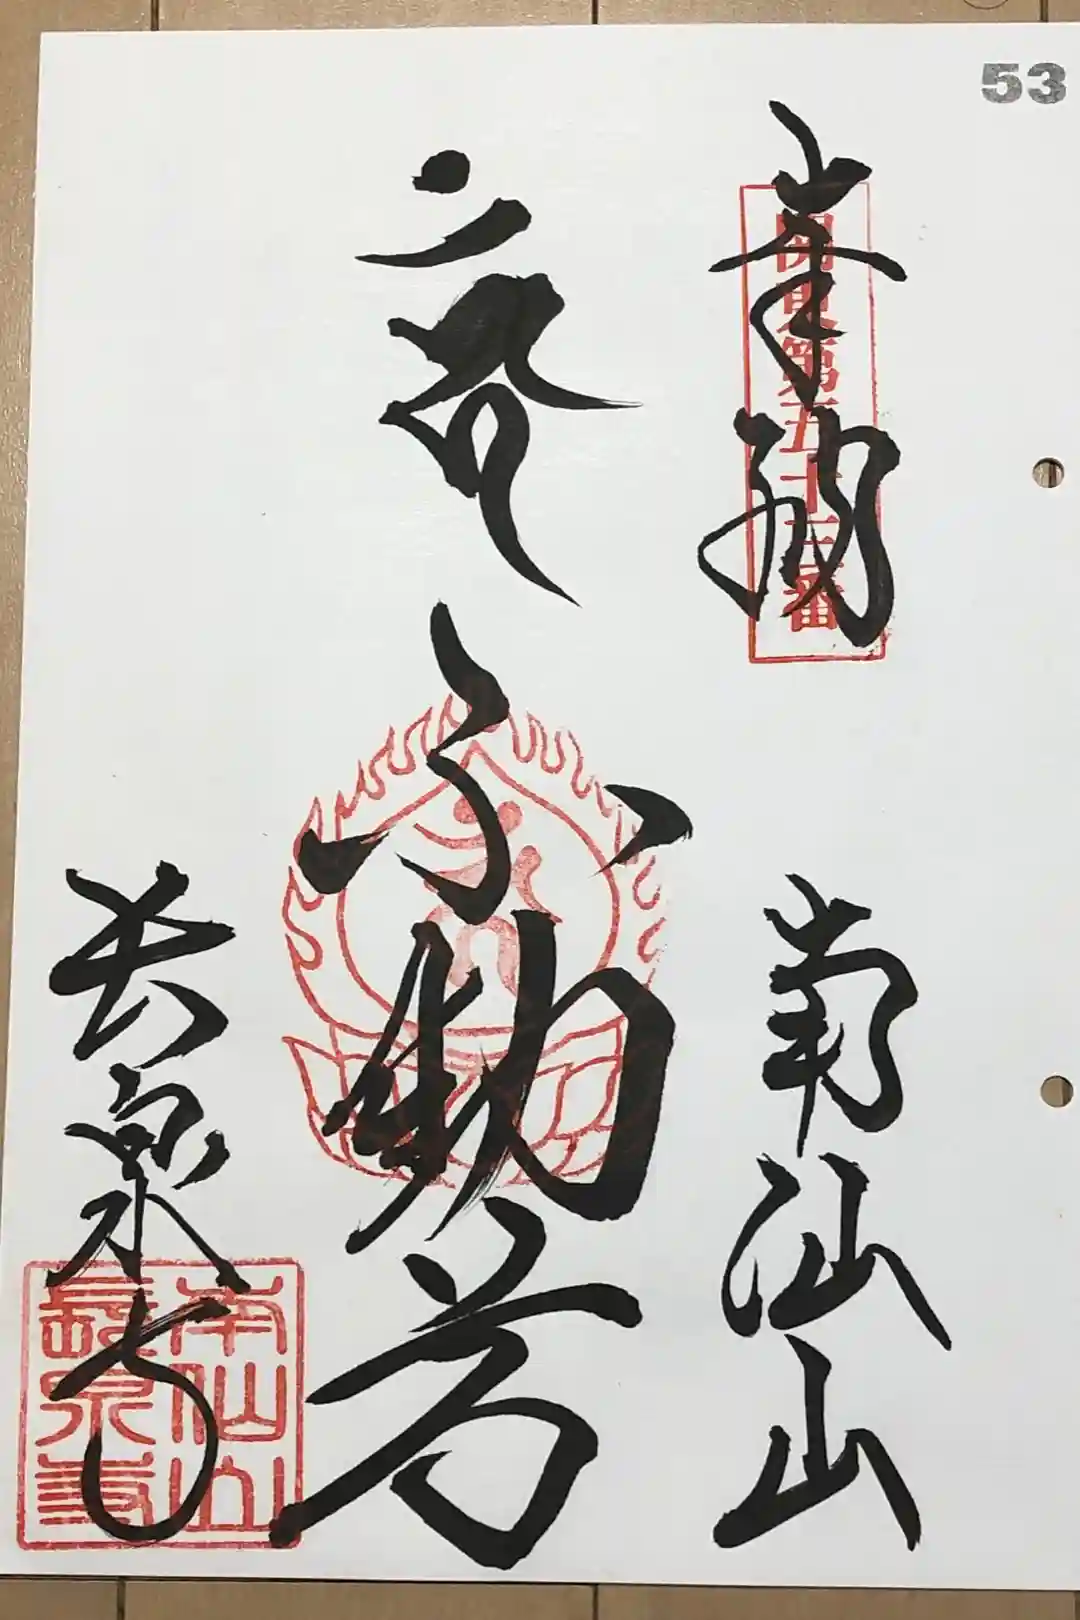 53
奉納
関東第五十三番
南仙山
不動尊
長泉寺
南仙山
長泉寺